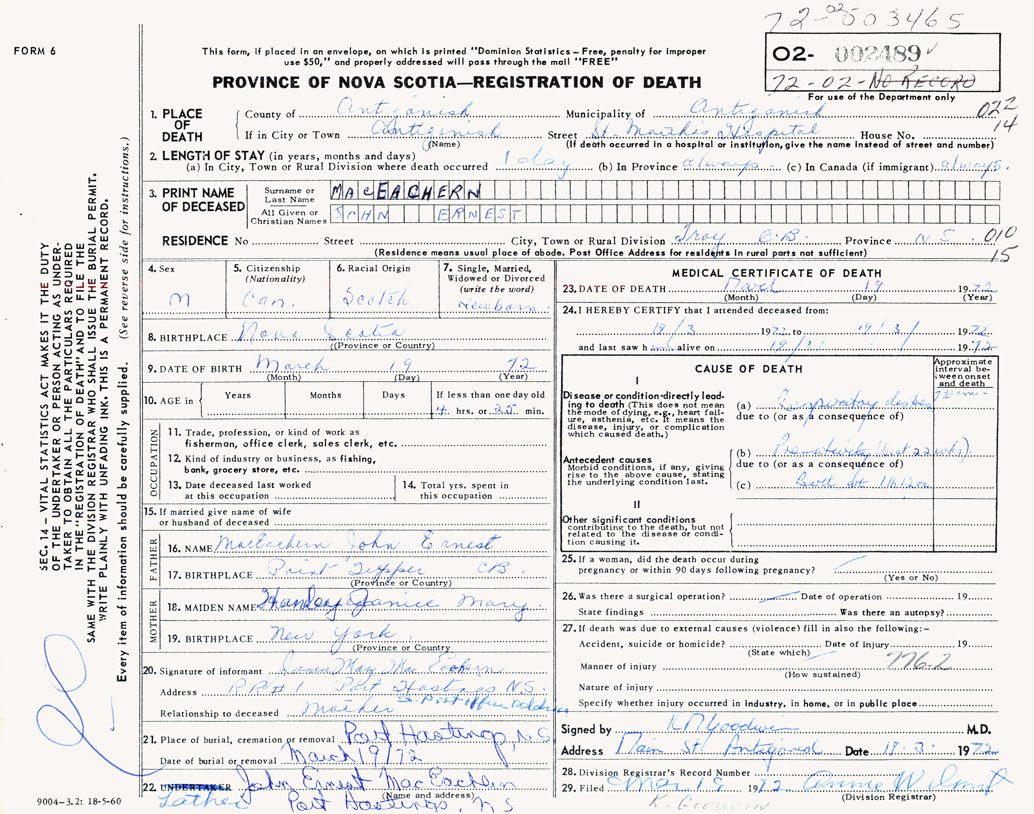 72-02-003465
FORM 6
This form, if placed in an envelope, on which is printed "Dominion Statistics – Free, penalty for improper
use $50," and properly addressed will pass through the mail "FREE"
O2- 002489
72-02-NO RECORD
For use of the Department only
PROVINCE OF NOVA SCOTIA—REGISTRATION OF DEATH
022
14
1. PLACE OF DEATH
County of Antigonish Municipality of Antigonish
If in City or Town Antigonish Street St. Martha's Hospital House No.
(Name) (If death occurred in a hospital or institution, give the name instead of street and number)
2. LENGTH OF STAY (in years, months and days)
(a) In City, Town or Rural Division where death occurred 1 day (b) In Province always (c) In Canada (if immigrant) always.
3. PRINT NAME OF DECEASED
Surname or Last Name MACEACHERN
All Given or Christian Names JOHN ERNEST
RESIDENCE No Street City, Town or Rural Division Troy C.B. Province N.S. 010
15
(Residence means usual place of abode. Post Office Address for residents in rural parts not sufficient)
4. Sex
M
5. Citizenship
(Nationality)
Can.
6. Racial Origin
Scotch
7. Single, Married, Widowed or Divorced
(write the word)
Newborn
8. BIRTHPLACE Nova Scotia
(Province or Country)
9. DATE OF BIRTH March 19 72
(Month) (Day) (Year)
10. AGE in Years Months Days If less than one day old
4 hrs. or 25 min.
OCCUPATION
11. Trade, profession, or kind of work as
fisherman, office clerk, sales clerk, etc.
12. Kind of industry or business, as fishing,
bank, grocery store, etc.
13. Date deceased last worked
at this occupation
14. Total yrs. spent in
this occupation
15. If married give name of wife
or husband of deceased
FATHER
16. NAME MacEachern John Ernest
17. BIRTHPLACE Point Tupper C.B.
(Province or Country)
MOTHER
18. MAIDEN NAME Janice Mary
19. BIRTHPLACE New York
(Province or Country)
20. Signature of informant Mary Mac Eachern
Address RR#1 Port Hastings N.S.
Relationship to deceased Mother
21. Place of burial, cremation or removal Port Hastings, N.S.
Date of burial or removal March 19/72
22. UNDERTAKER John Ernest MacEachern
(Name and address)
Father Port Hastings, NS
9004–3.2: 18-5-60
MEDICAL CERTIFICATE OF DEATH
23. DATE OF DEATH March 19 1972
(Month) (Day) (Year)
24. I HEREBY CERTIFY that I attended deceased from:
19/3 1972 to 19/3/ 1972
and last saw h alive on 19/3/ 1972
CAUSE OF DEATH
Approximate interval between onset and death
I
Disease or condition directly leading to death (This does not mean the mode of dying, e.g., heart failure, asthenia, etc. It means the disease, injury, or complication which caused death.)
(a) Respiratory distress
due to (or as a consequence of)
Antecedent causes
Morbid conditions, if any, giving rise to the above cause, stating the underlying condition last.
(b) Prematurity
due to (or as a consequence of)
(c) Birth wt
II
Other significant conditions
contributing to the death, but not related to the disease or condition causing it.
25. If a woman, did the death occur during
pregnancy or within 90 days following pregnancy?
(Yes or No)
26. Was there a surgical operation? Date of operation 19
State findings Was there an autopsy?
27. If death was due to external causes (violence) fill in also the following:–
Accident, suicide or homicide? Date of injury 19
(State which)
776.2
Manner of injury
(How sustained)
Nature of injury
Specify whether injury occurred in industry, in home, or in public place
Signed by Goodwin M.D.
Address Main St. Antigonish Date 19.3. 1972
28. Division Registrar's Record Number
29. Filed Mar 19 1972 Annie
(Division Registrar)
K. Goodwin
SEC. 14 – VITAL STATISTICS ACT MAKES IT THE DUTY
OF THE UNDERTAKER OR PERSON ACTING AS UNDER-
TAKER TO OBTAIN ALL THE PARTICULARS REQUIRED
IN THE "REGISTRATION OF DEATH" AND TO FILE THE
SAME WITH THE DIVISION REGISTRAR WHO SHALL ISSUE THE BURIAL PERMIT.
WRITE PLAINLY WITH UNFADING INK. THIS IS A PERMANENT RECORD.
Every item of information should be carefully supplied. (See reverse side for instructions.)